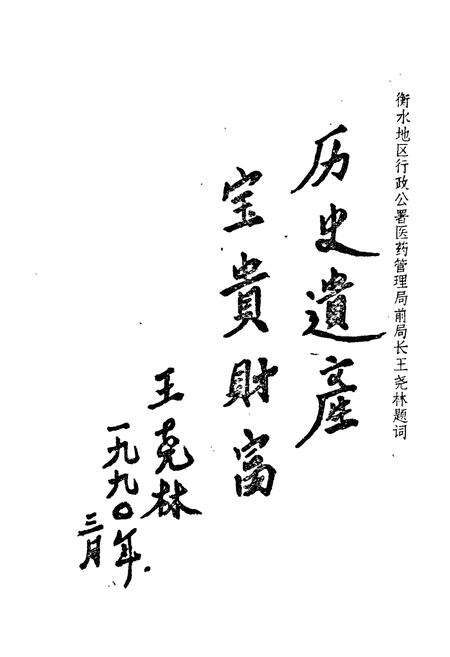 衡水地区行政公署医药管理局前局长王尧林题词
历史遺産
宝貴財富
王尧林
一九九〇年
三月